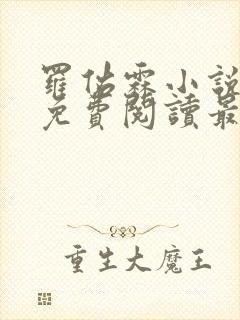 羅佑霖小說
免費閱讀最
重生大魔王